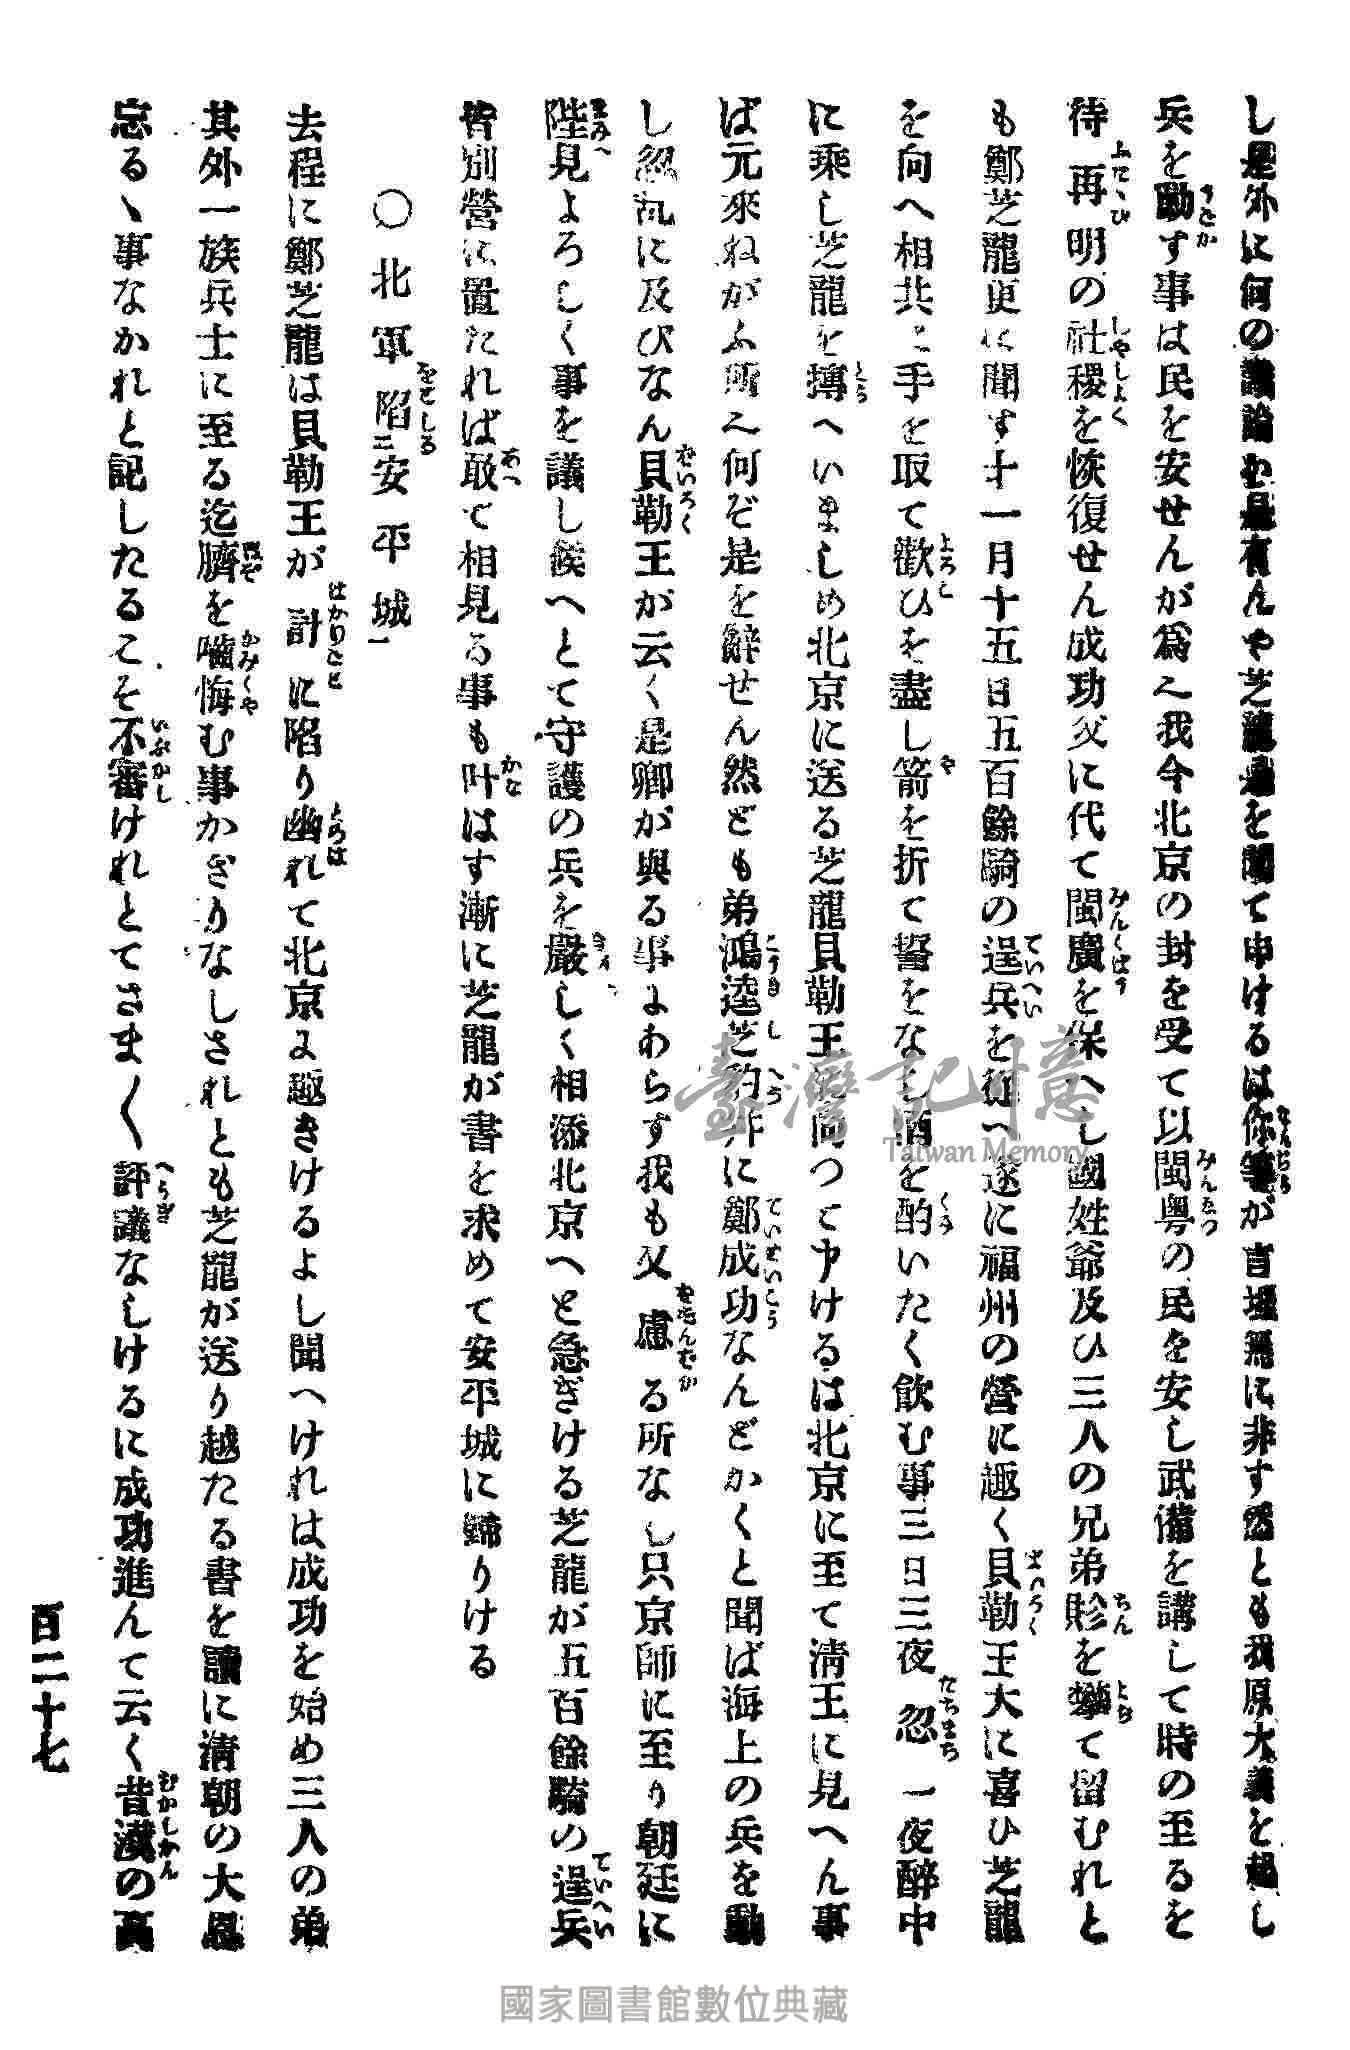 し是外に何の議論か是有んや芝龍是を聞て申けるは你等が言理無に非す然とも我原大義を起し
兵を動す事は民を安せんが爲へ我今北京の封を受て以閩粤の民を安し武備を講して時の至るを
待再明の社稷を恢復せん成功父に代て閩廣を保へし國姓爺及ひ三人の兄弟賒を攀て留むれと
も鄭芝龍更に聞す十一月十五日五百餘騎の逞兵を從へ遂に福州の營に趣く貝勒王大に喜ひ芝龍
を向へ相共に手を取て歡ひを盡し箭を折て誓をなし酒を酌いたく飲む事三日三夜忽一夜醉中
に乘し芝龍を搏へいましめ北京に送る芝龍貝勒王に向つて申けるは北京に至て淸王に見へん事
ば元來ねがふ所へ何ぞ是を辭せん然ども弟鴻逵芝豹并に鄭成功なんどかくと聞ば海上の兵を動
し忽乱に及びなん貝勒王が云く是卿が與る事にあらす我も又慮る所なし只京師に至り朝廷に
陛見よろしく事を議し候へとて守護の兵を嚴しく相添北京へと急ぎける芝龍が五百餘騎の逞兵
皆別營に置たれば敢て相見る事も叶はす漸に芝龍が書を求めて安平城に歸りける
○北軍陷二安平城一
去程に鄭芝龍は貝勒王が計に陷り幽れて北京に趣きけるよし聞へけれは成功を始め三人の弟
其外一族兵士に至る迄臍を嚙悔む事かぎりなしされとも芝龍が送り越たる書を讀に淸朝の大恩
忘るヽ事なかれと記したるこそ不審けれとてさま〱評議なしけるに成功進んて云く昔漢の高
百二十七
臺灣記憶
Taiwan Memory
國家圖書館數位典藏